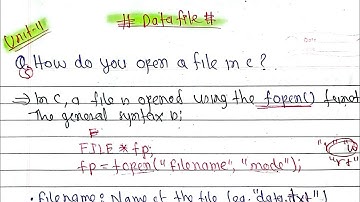 Unit-11
# Data file #
Q5 How do you open a file in c?
⇒ In c, a file is opened using the fopen()
The general syntax is;
F
FILE * fp;
fp = fopen("filename", "mode");
"rt"
• filename: Name of the file (eg. "data.txt")